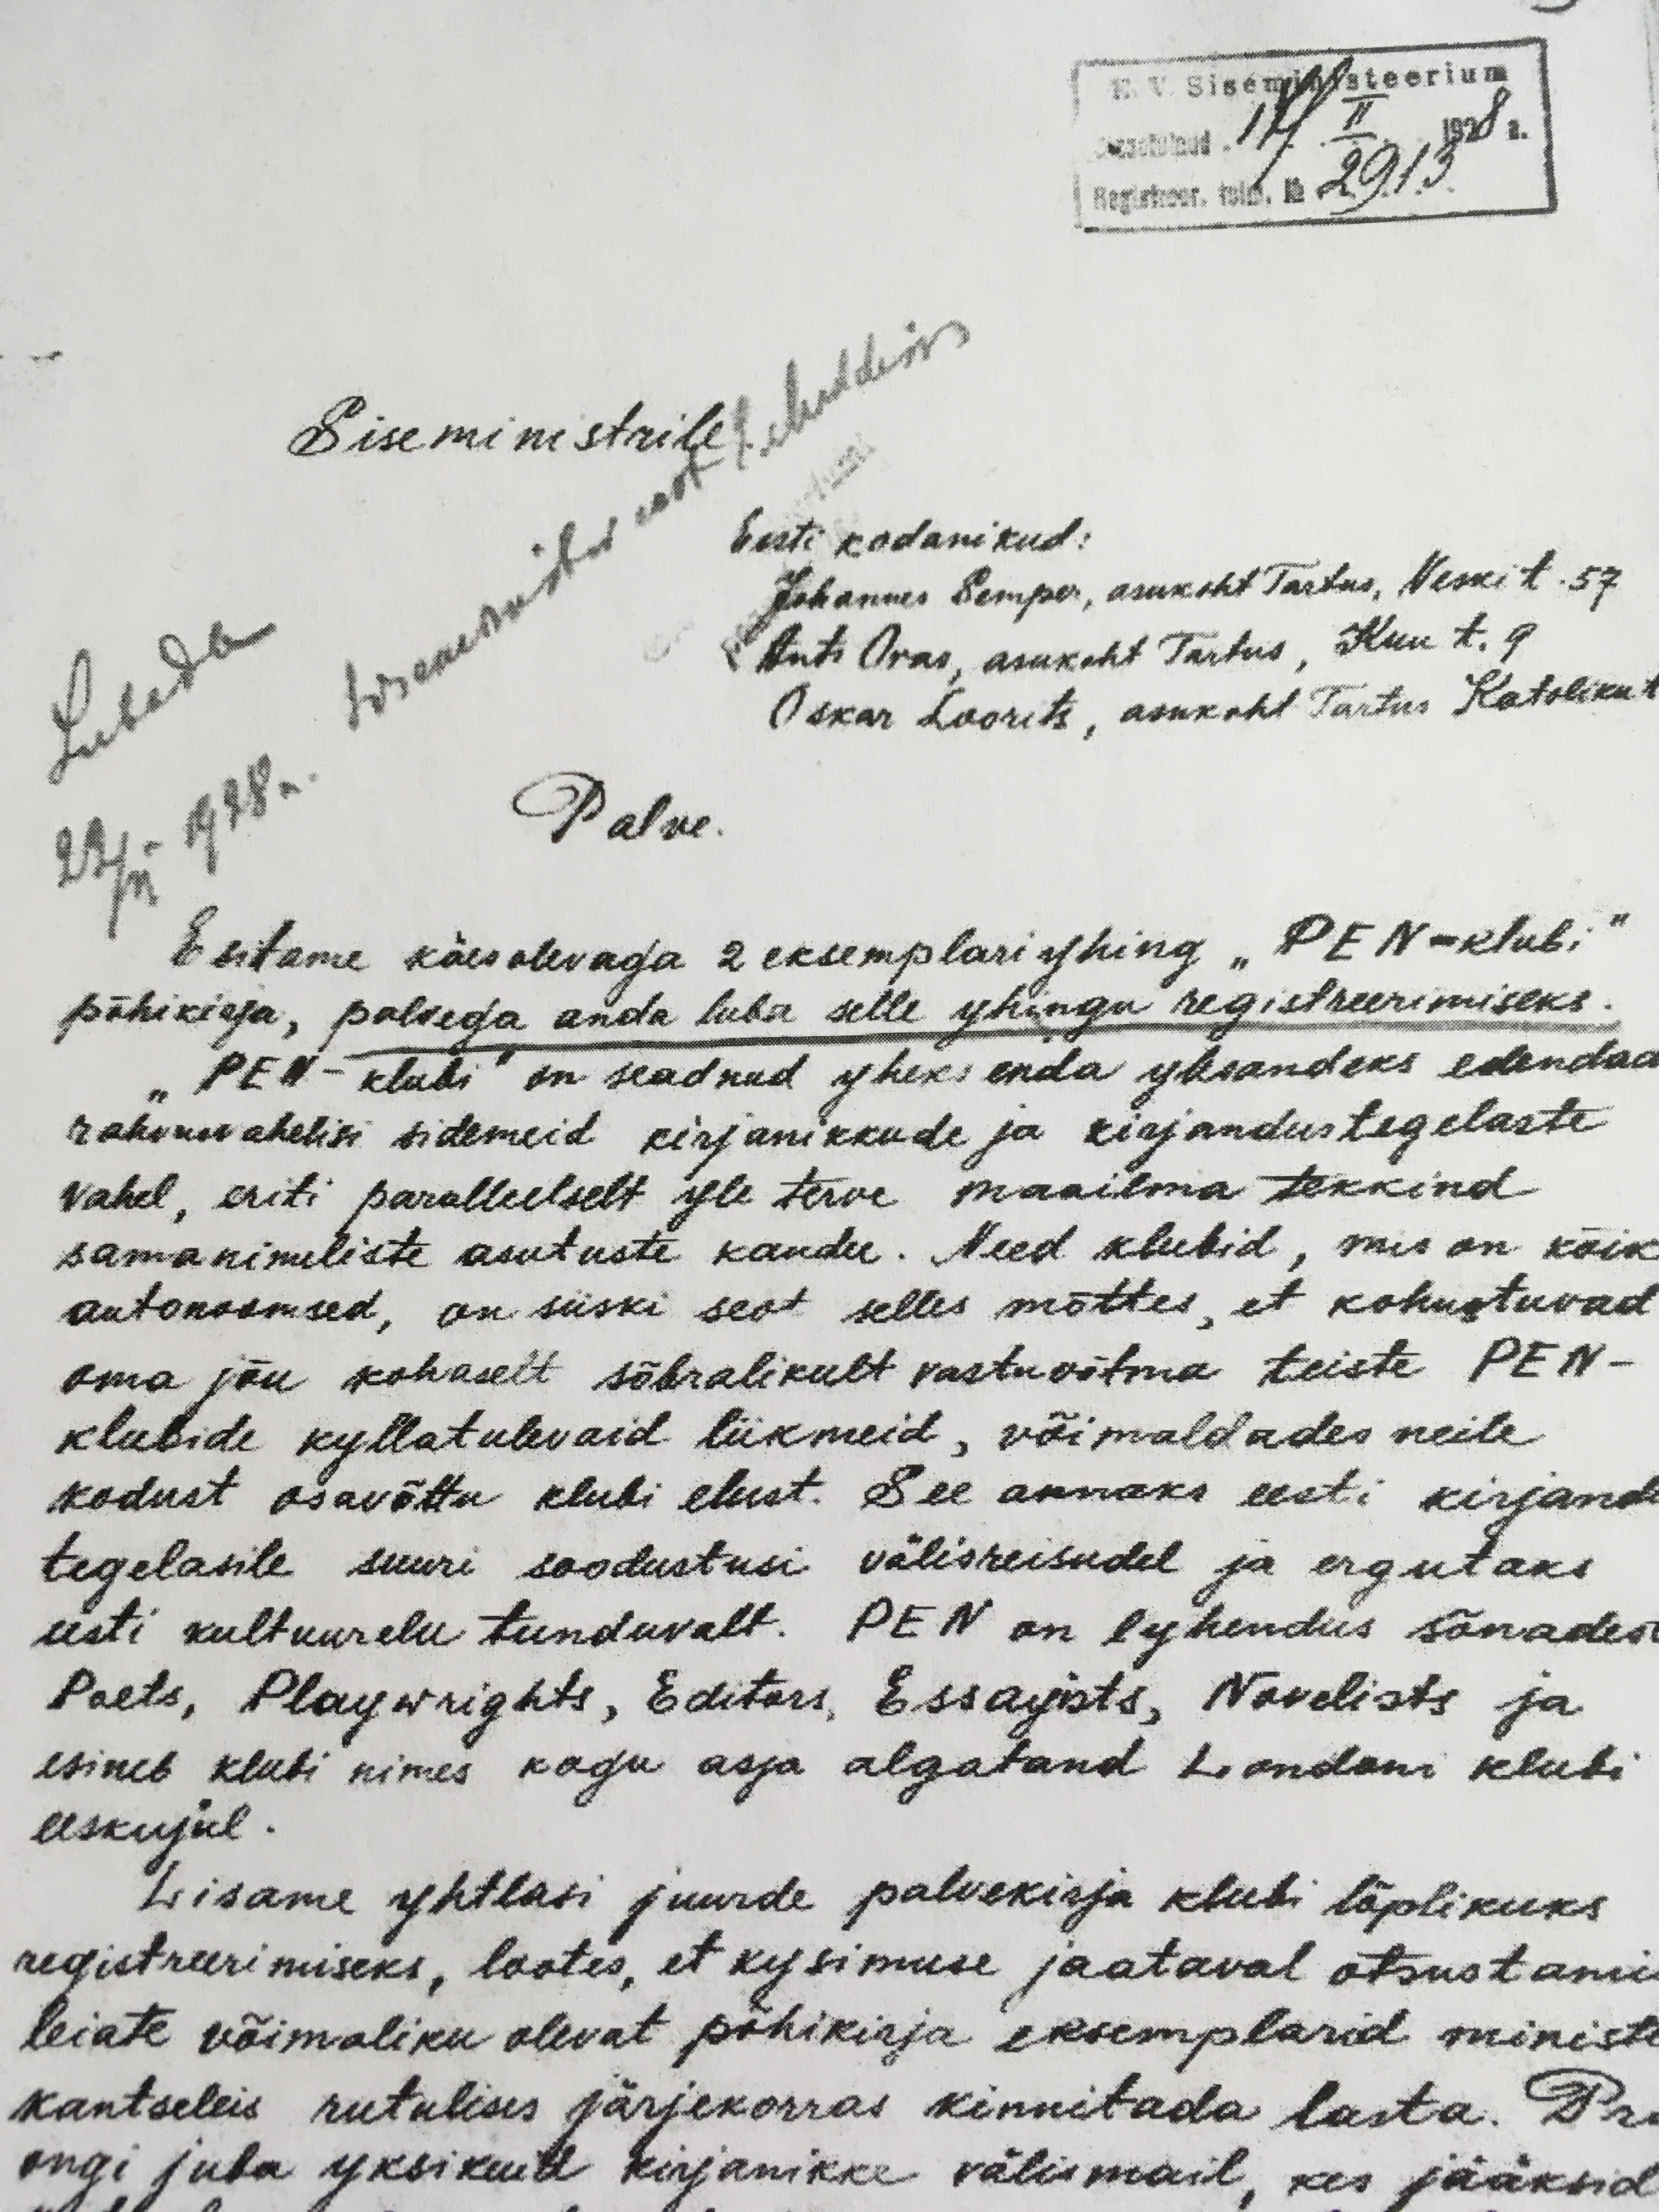 E. V. Siseministeerium
Saabunud 14 II 1928 a.
Registreer. toim. № 2913
Siseministrile
Eesti kodanikud:
Johannes Semper, asukoht Tartus, Veski t. 57
Ants Oras, asukoht Tartus, Kuu t. 9
Oskar Loorits, asukoht Tartus Katoliku t
Lubada
22/II 1928 a.
Palve.
Esitame käesolevaga 2 eksemplari yhing „PEN-klubi"
põhikirja, palvega anda luba selle yhingu registreerimiseks.
„PEN-klubi" on seadnud yheks enda ylesandeks edendad
rahvusvahelisi sidemeid kirjanikkude ja kirjandustegelaste
vahel, eriti paralleelselt yle terve maailma tekkind
samanimeliste asutuste kaudu. Need klubid, mis on kõik
autonoomsed, on siiski seot selles mõttes, et kohustuvad
oma jõu kohaselt sõbralikult vastuvõtma teiste PEN-
klubide kyllatulevaid liikmeid, võimaldades neile
kodust osavõttu klubi elust. See annaks eesti kirjand
tegelasile suuri soodustusi välisreisudel ja ergutaks
eesti kultuurelu tunduvalt. PEN on lyhendus sõnadest
Poets, Playwrights, Editors, Essayists, Novelists ja
esineb klubi nimes kogu asja algatand Londoni klubi
eeskujul.
Lisame yhtlasi juurde palvekirja klubi lõplikuks
registreerimiseks, lootes, et kysimuse jaataval otsustami
leiate võimaliku olevat põhikirja eksemplarid ministe
kantseleis rutulises järjekorras kinnitada lasta. Pr
ongi juba yksikuid kirjanikke välismail, kes jääksid